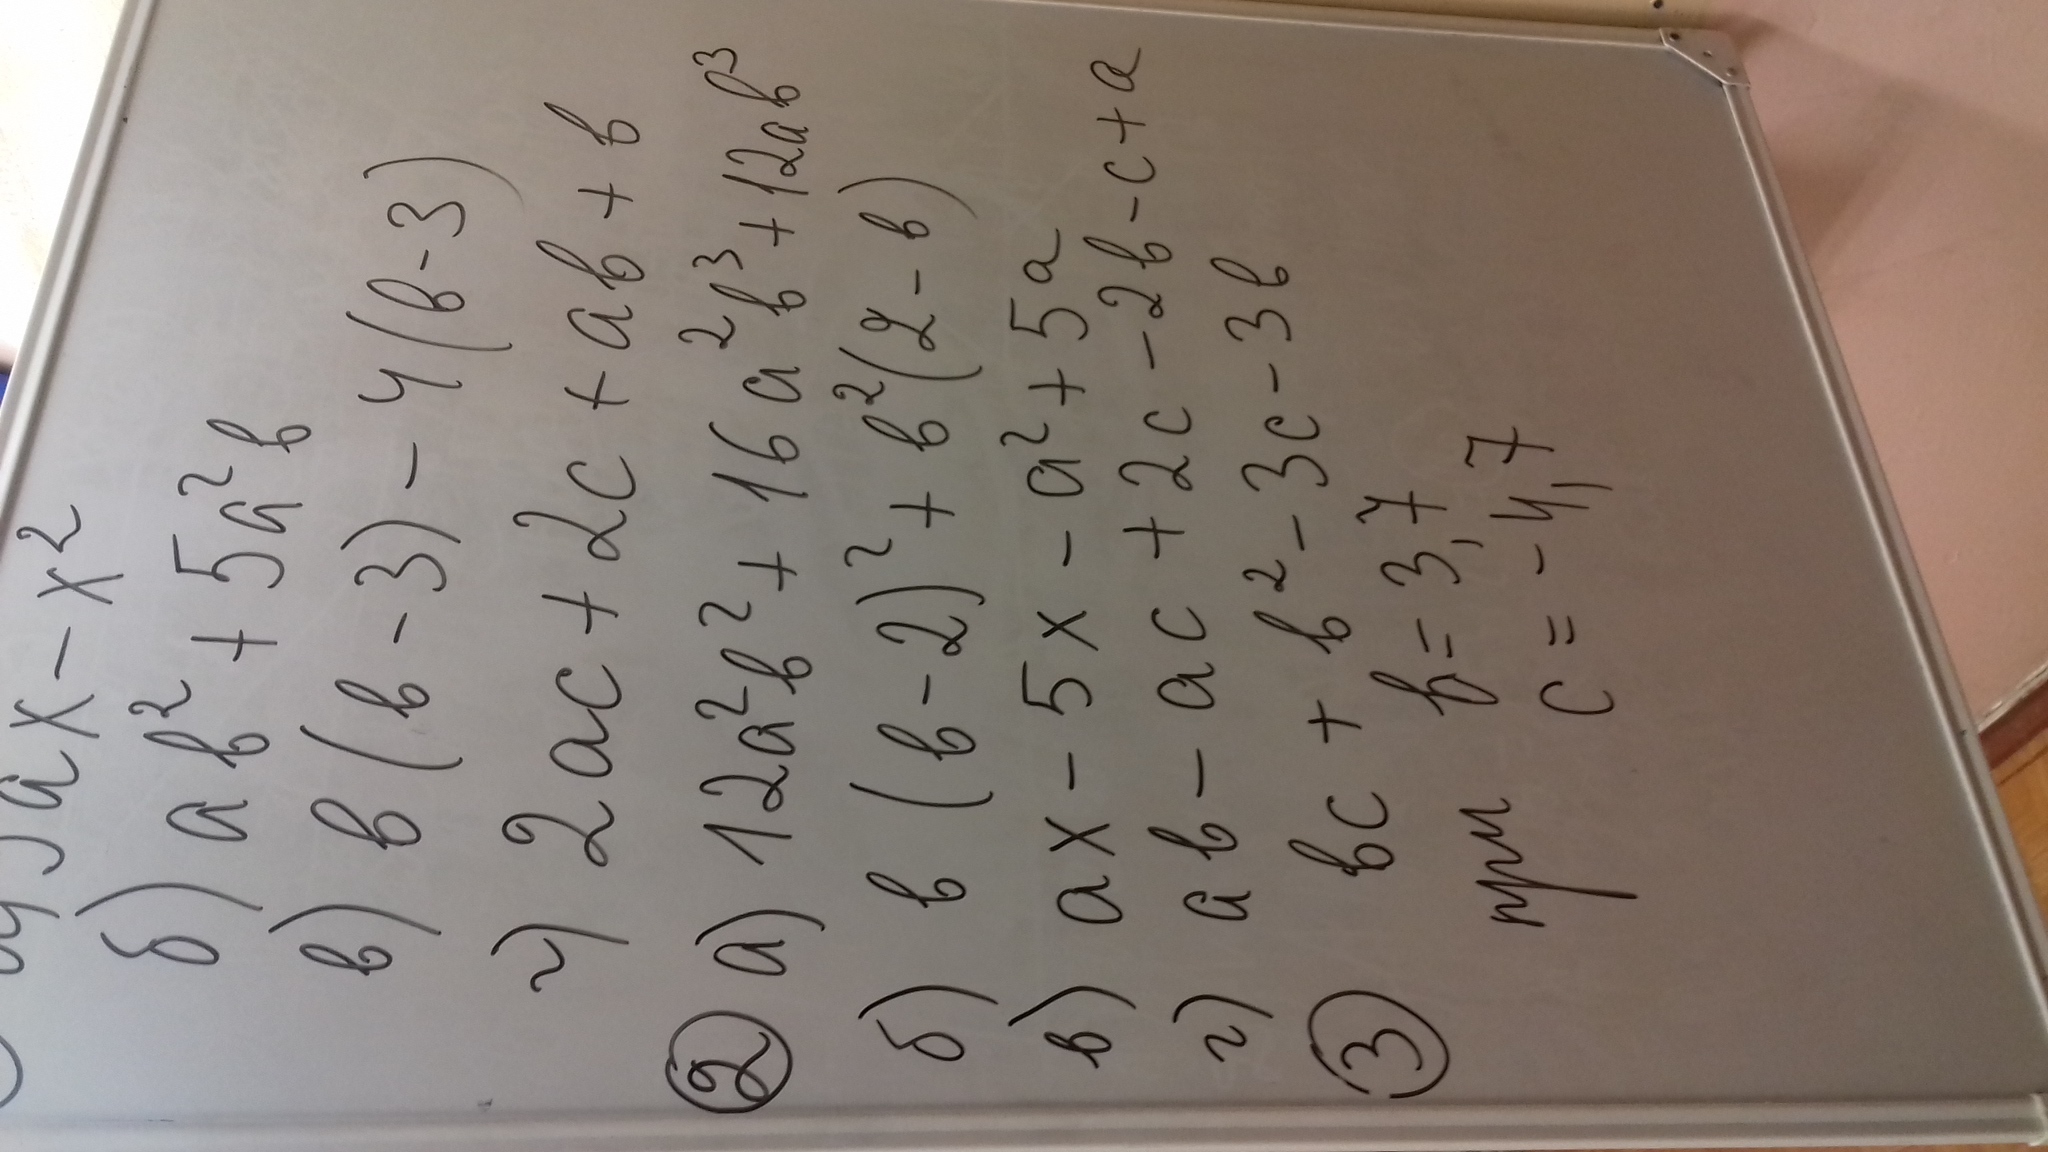 ax - x²
б) ab² + 5a²b
в) b(b-3) - 4(b-3)
г) 2ac + 2c + ab + b
② а) 12a²b² + 16a²b³ + 12ab³
б) b(b-2)² + b²(2-b)
в) ax - 5x - a² + 5a
г) ab - ac + 2c - 2b - c + a
③ bc + b² - 3c - 3b
при b = 3,7
c = -4,7